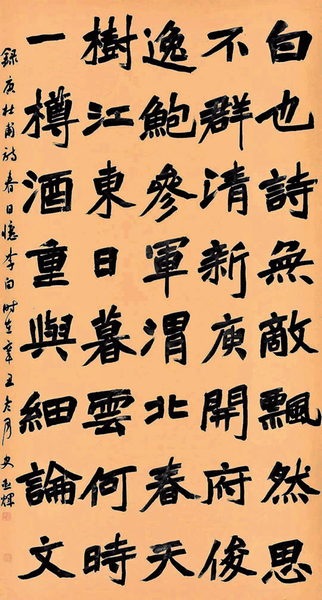 白也詩無敵飄然思
不群清新庾開府俊
逸鮑參軍渭北春天
樹江東日暮雲何時
一樽酒重與細論文
錄唐杜甫詩春日憶李白时在辛丑冬月史亚輝